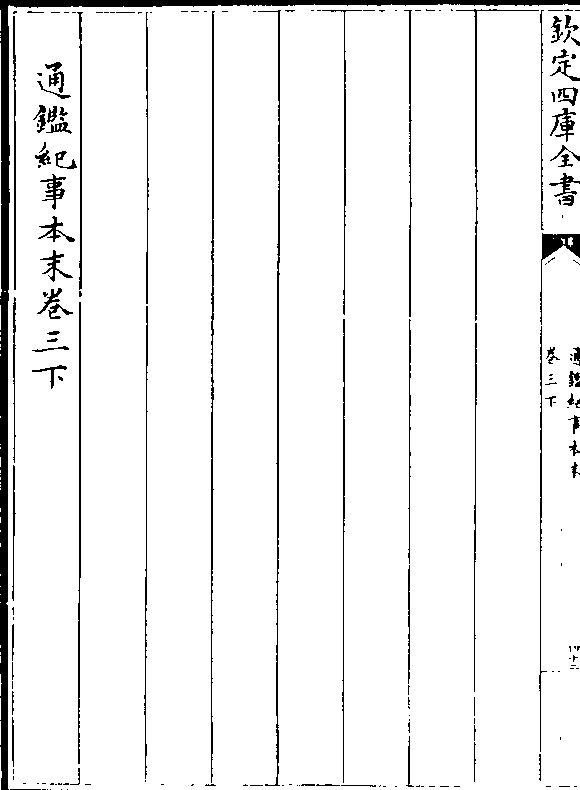 欽定四庫全書
通鑑紀事本末
卷三下
四十二
通鑑紀事本末卷三下